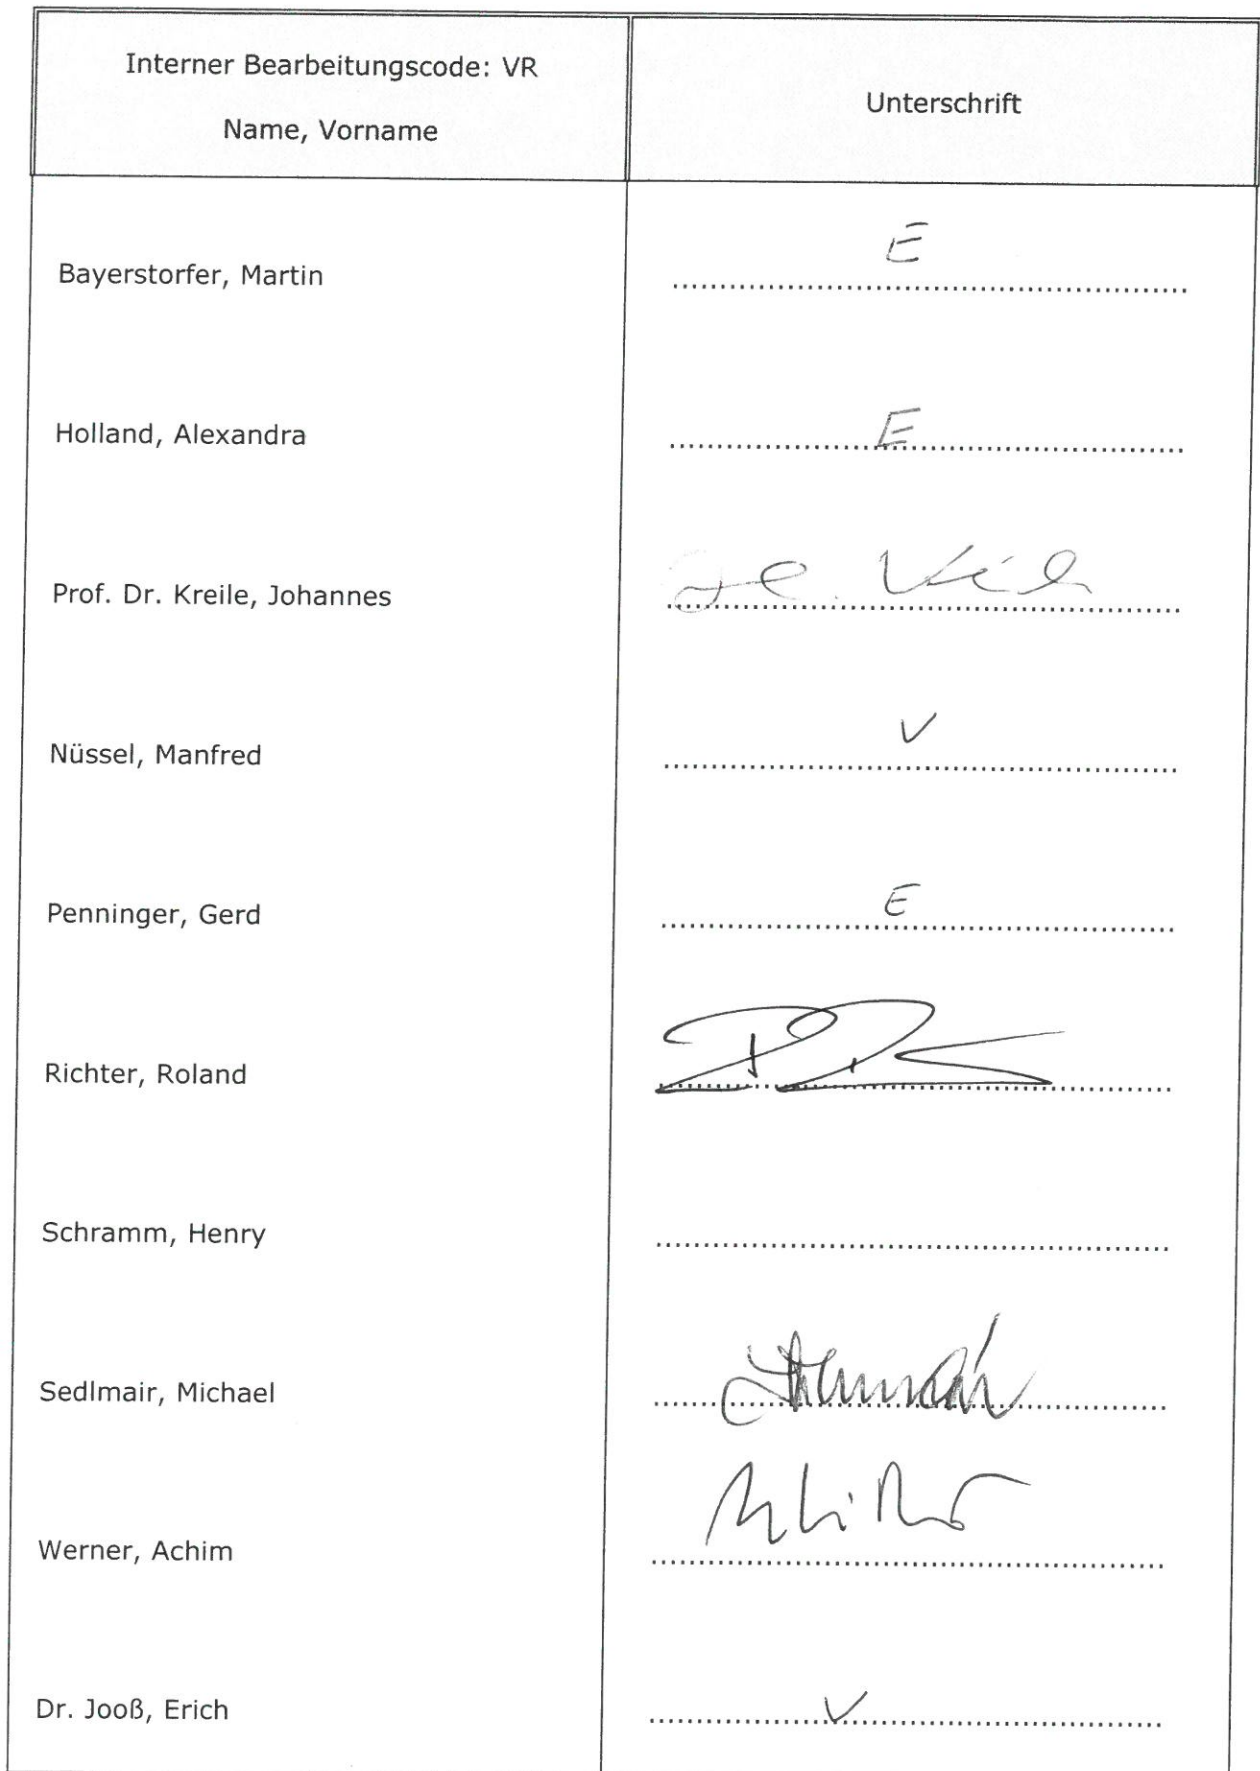 Interner Bearbeitungscode: VR
Name, Vorname
Unterschrift
Bayerstorfer, Martin
E
Holland, Alexandra
E
Prof. Dr. Kreile, Johannes
Nüssel, Manfred
V
Penninger, Gerd
E
Richter, Roland
Schramm, Henry
Sedlmair, Michael
Werner, Achim
Dr. Jooß, Erich
V